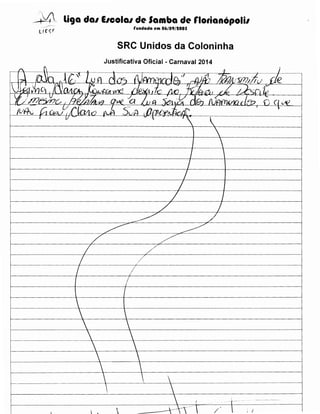 Liga das Escolas de Samba de Florianópolis
Fundada em 06/09/2005
SRC Unidos da Coloninha
Justificativa Oficial - Carnaval 2014
A ala 16 "Lua dos Namorados" não transmitiu de
forma clara, conforme descrito no
mesma, que a Lua seria dos Namorados, o que
não ficou claro na sua apresentação.